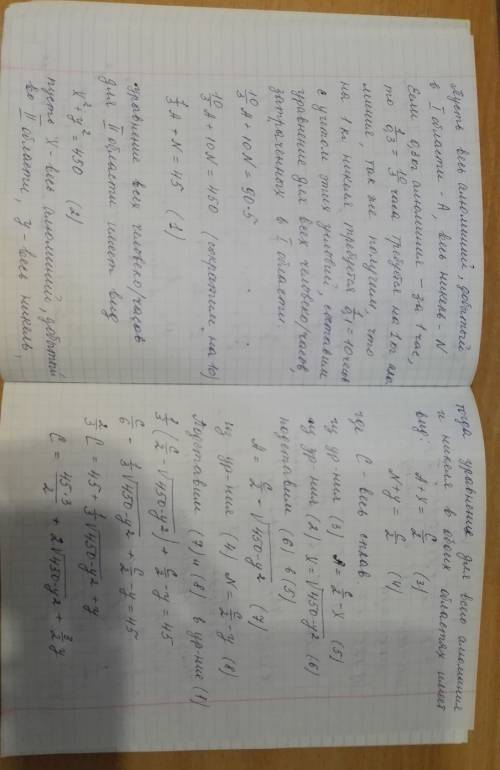 Пусть весь алюминий, добытый
в I области - A, весь никель - N
Если 0,3 кг алюминия - за 1 час,
то 1/0,3 = 10/3 часа требуется на 1 кг алю
миния, так же получим, что
на 1 кг никеля требуется 1/0,1 = 10 часов
с учетом этих условий, составим
уравнение для всех человеко/часов,
затраченных в I области.
10/3 A + 10N = 90·5
10/3 A + 10N = 450 (сократим на 10)
1/3 A + N = 45 (1)
Уравнение всех человеко/часов
для II области имеет вид
x² + y² = 450 (2)
пусть x - весь алюминий, добытый
во II области, y - весь никель,
тогда уравнения для всего алюминия
и никеля в обоих областях имеет
вид: A + x = C/2 (3)
N + y = C/2 (4)
где C - весь сплав
из ур-ния (3) A = C/2 - x (5)
из ур-ния (2) x = √450-y² (6)
подставим (6) в (5)
A = C/2 - √450-y² (7)
из ур-ния (4) N = C/2 - y (8)
Подставим (7) и (8) в ур-ние (1)
1/3 (C/2 - √450-y²) + C/2 - y = 45
C/6 - 1/3 √450-y² + C/2 - y = 45
2/3 C = 45 + 1/3 √450-y² + y
C = 45·3/2 + 2√450-y² + 3/2 y